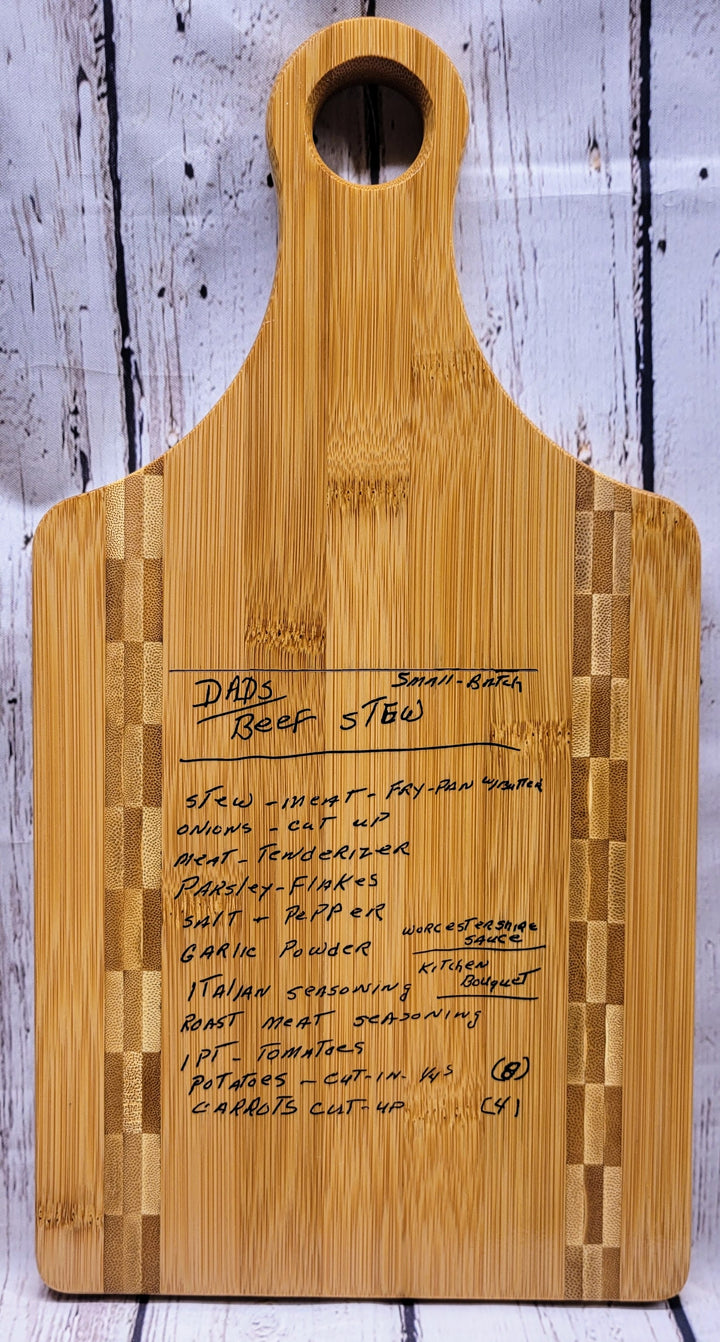 DADS
Small-Batch
Beef STEW
STEW - MEAT - FRY-PAN w/Butter
ONIONS - CUT UP
MEAT - TENDERIZER
PARSley-FlAKeS
SAlT + PePPeR
GARlic POWDER
WORCESTERSHIRE
SAUCE
KiTCHeN
BOUQUET
ITAlIAN SEASONING
ROAST MEAT SEASONING
1 PT - TOMATOES
POTATOES - CUT-IN- 1/4s (8)
CARROTS CUT-UP (4)